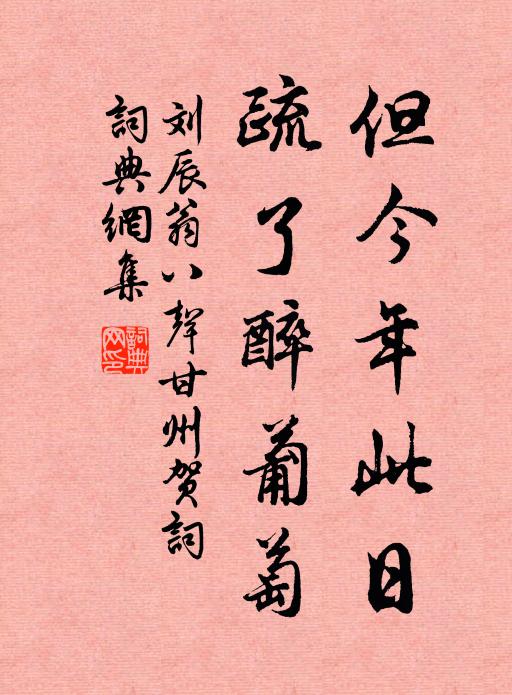 但今年此日
疏了醉葡萄
刘辰翁八聲甘州贺詞
詞典網集
詞典網印